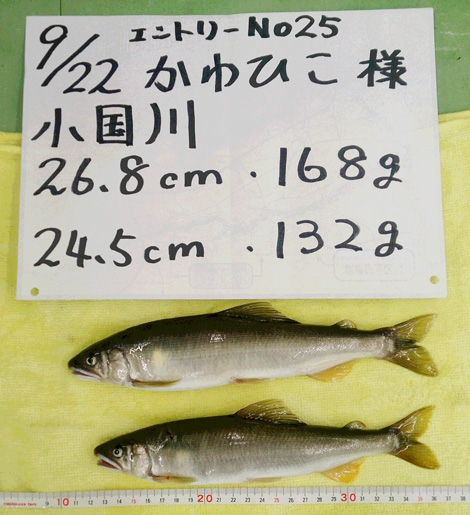 9/22 エントリーNo25
かわひこ様
小国川
26.8cm・168g
24.5cm・132g
10 20 30